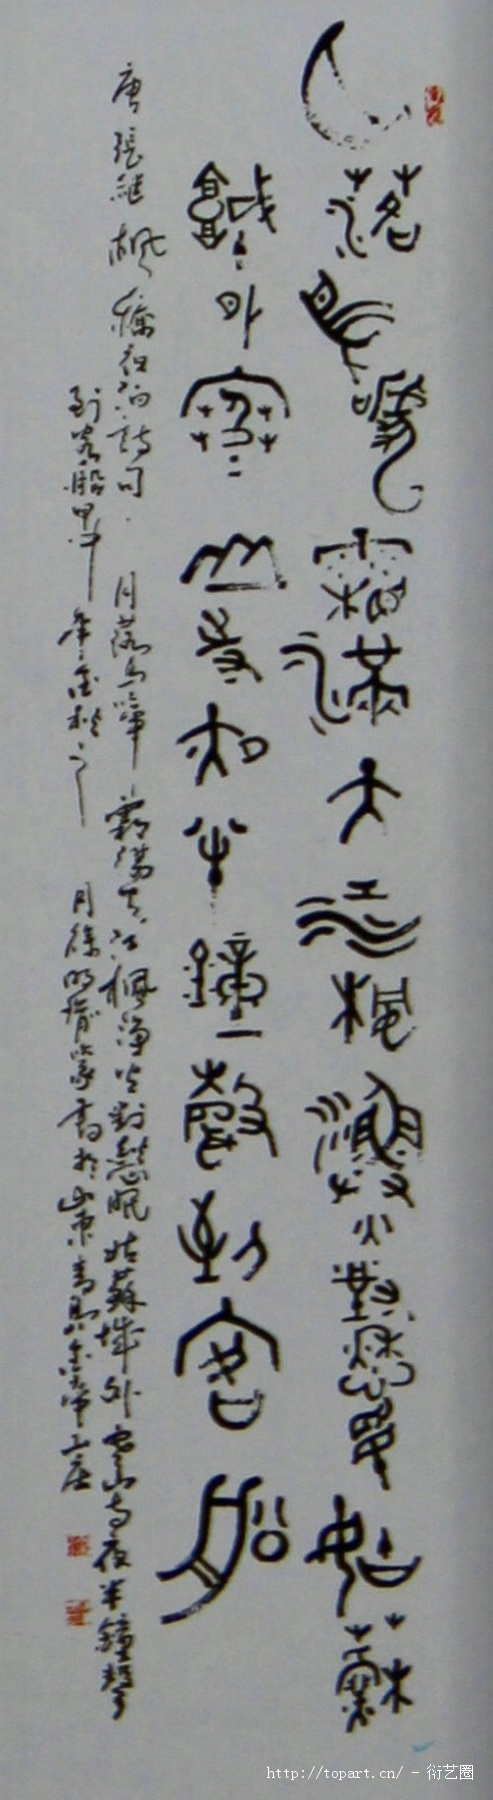 月落烏啼霜滿天江楓漁火對愁眠姑蘇
城外寒山寺夜半鐘聲到客船
唐張繼楓橋夜泊詩句 月落烏啼霜滿天江楓漁火對愁眠姑蘇城外寒山寺夜半鐘聲
到客船甲午年金秋之月 書於山東青島
http://topart.cn/ - 衍艺圈